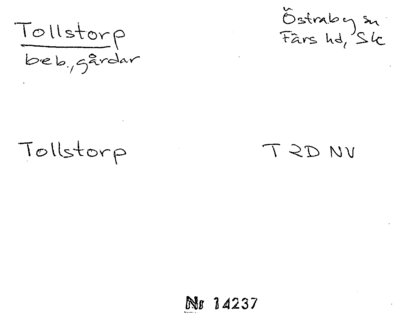 Tollstorp
beb., gårdar
Östraby sn
Färs hd, Sk
Tollstorp
T 2D NV
Nr 14237